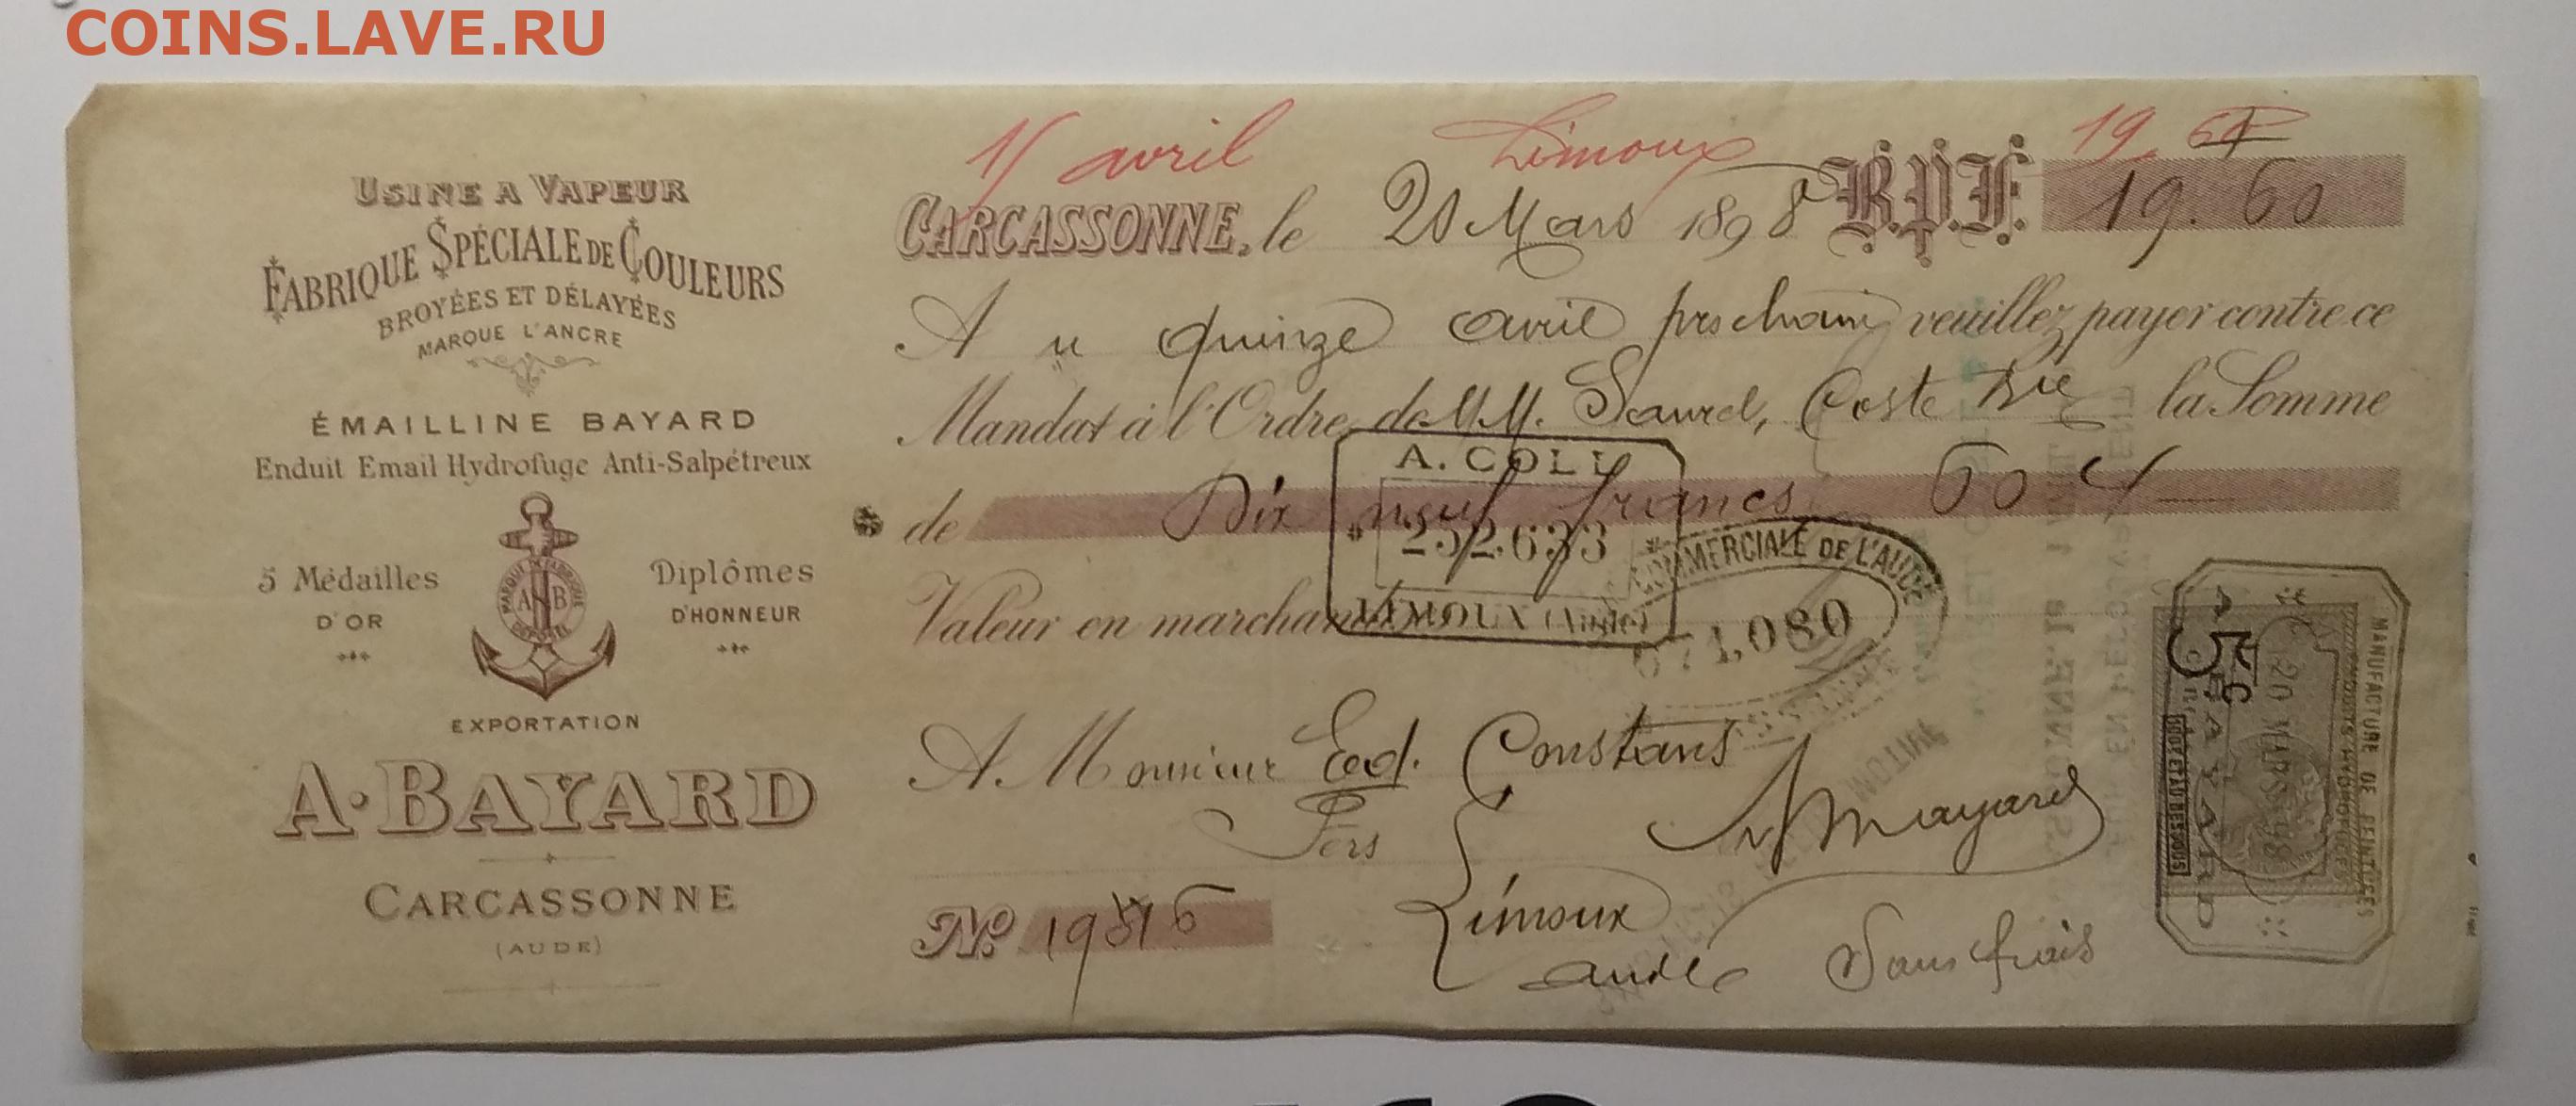 COINS.LAVE.RU
USINE A VAPEUR
FABRIQUE SPÉCIALE DE COULEURS
BROYÉES ET DÉLAYÉES
MARQUE L'ANCRE
ÉMAILLINE BAYARD
Enduit Email Hydrofuge Anti-Salpétreux
5 Médailles
D'OR
MARQUE DE FABRIQUE
A B
DÉPOSÉE
Diplômes
D'HONNEUR
EXPORTATION
A. BAYARD
CARCASSONNE
(AUDE)
15 avril Limoux 19
CARCASSONNE, le 20 Mars 1898 B.P.F. 19.60
A u quinze avril prochain veuillez payer contre ce
Mandat à l'Ordre de MM. Saurel, Coste la Somme
de Dix neuf francs 60 c
A. COLL
252.633
LIMOUX (Aude)
COMMERCIALE DE L'AUDE
671,080
Valeur en marchan
A Monsieur Ed. Constans
Fers
Limoux
aude
Sans frais
No
MANUFACTURE DE PEINTURES
PRODUITS HYDROFUGES
20 MARS 98
A. BAYARD
5c